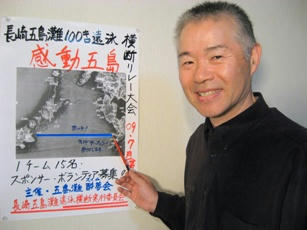 長崎五島灘100キロ遠泳
横断リレー大会
感動五島
09・7
1チーム15名・
スポンサー・ボランティア募集
主催・五島灘酔泳会
長崎五島灘遠泳横断実行委員会